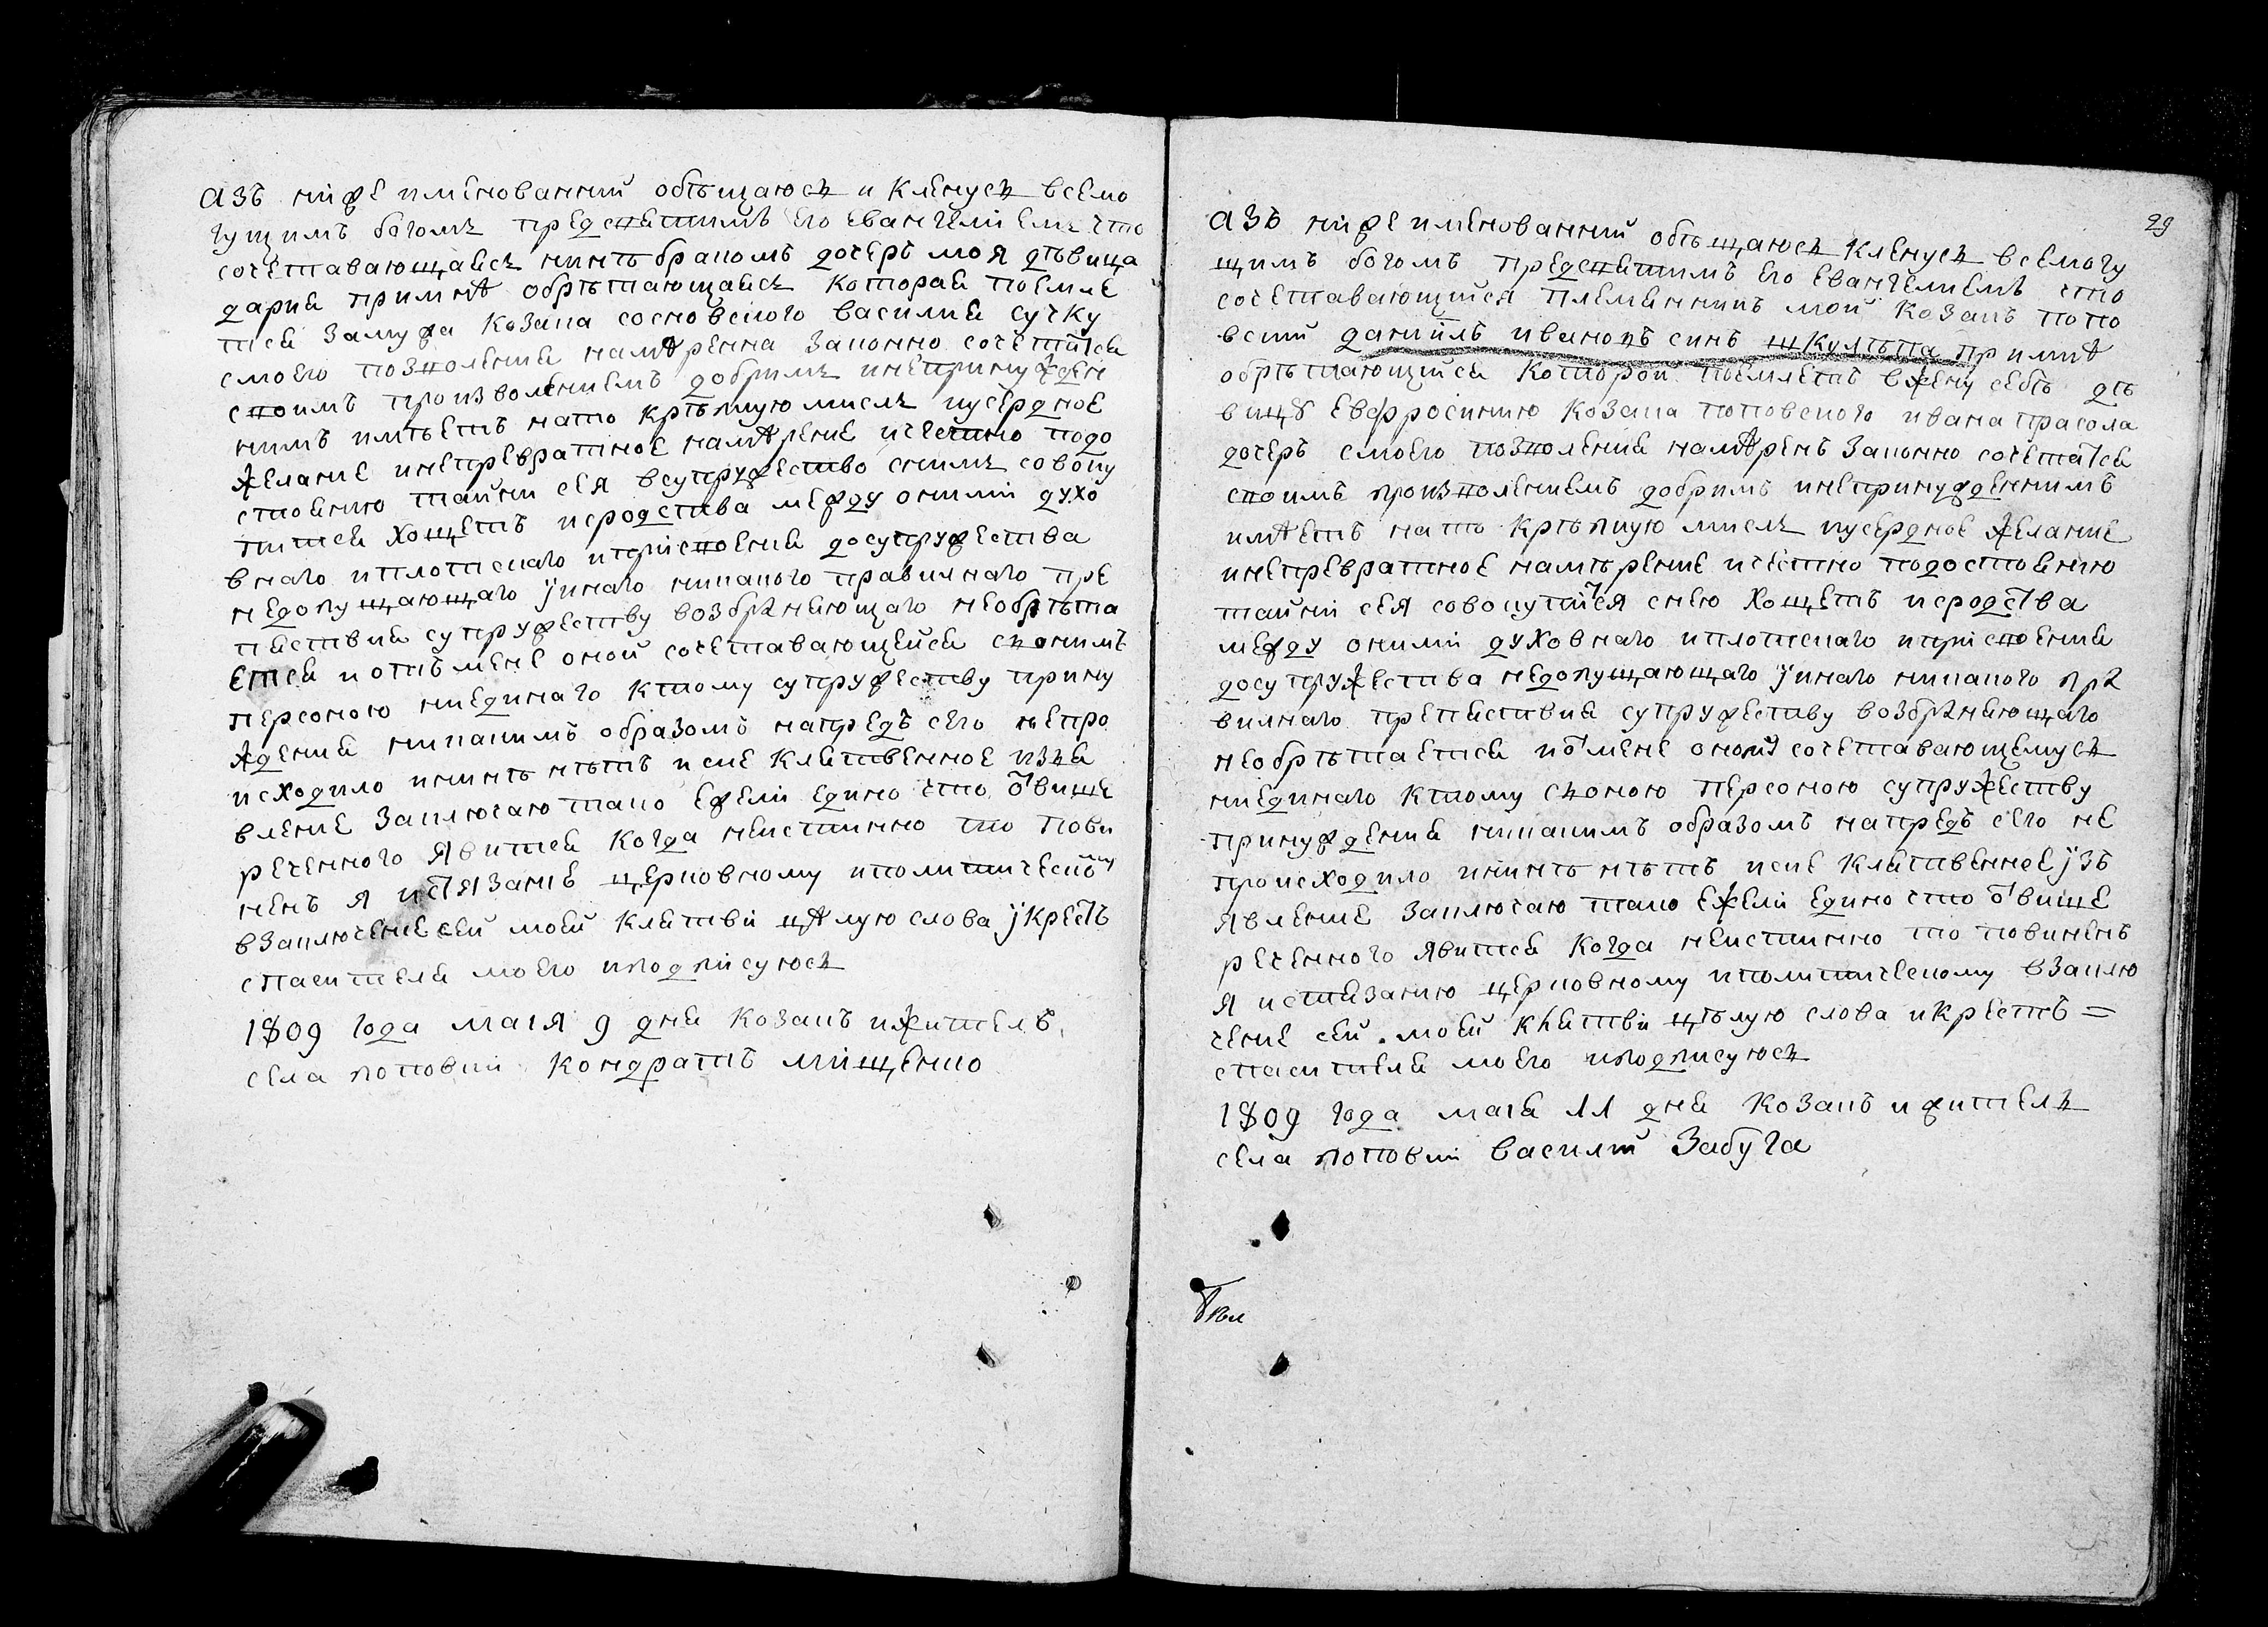 азъ ниже именованний обѣщаюсъ и кленусъ всемо
гущимъ богомъ предсвятимъ его евангелиемъ что
сочетавающаясъ нинѣ бракомъ дочеръ моя дѣвица
дария при мнѣ обрѣтающаясъ которая поемле
тися замужа козака сосновского василия сучку
смоего позволения намѣренна законно сочетатися
своимъ произволениемъ добримъ инепринужден
нимъ имѣетъ нато крѣпкую мислъ иусердное
желание инепревратное намѣрение ичестно подо
стоинню тайни сея всупружество снимъ совоку
питися хощетъ исродства между оними духо
внаго иплотскаго иприсвоения досупружества
недопущающаго ӱинаго никакого правилнаго пре
пятствия супружеству возбраняющаго необрѣта
ется иотъ мене оной сочетавающейся съ онимъ
персоною ниединаго ктому супружеству прину
ждения никакимъ образомъ напредъ сего непро
исходило ининѣ нѣтъ исие клятвенное изъя
вление заключаю тако ежели едино что ѿ више
реченного явится когда неистинно то пови
ненъ я истязание церковному иполитическому
взаключение сей моей клятви цѣлую слова ӱкрестъ
спасителя моего иподписуюсъ
1809 года мая 9 дня козакъ ижителъ
села поповки кондратъ мищенко
29
азъ ниже именованний обѣщаюсъ кленусъ всемогу
щимъ богомъ предсвятимъ его евангелиемъ что
сочетавающийся племянникъ мой козакъ попо
вски данїилъ ивановъ синъ шкулѣпа при мнѣ
обрѣтающийся которой поемлетъ вжену себѣ дѣ
вицу евфросинию козака поповского ивана прасола
дочеръ смоего позволения намѣренъ законно сочетатся
своимъ произволениемъ добримъ инепринужденнимъ
имѣетъ нато крѣпкую мислъ иусердное желание
инепревратное намѣрение ичестно подостоинню
тайни сея совокупится снею хощетъ исродства
между оними духовнаго иплотскаго иприсвоения
досупружества недопущающаго ӱинаго никакого пра
вилнаго препятствия супружеству возбраняющаго
необрѣтается иѿ мене оному сочетавающемусъ
ниединаго ктому съ оною персоною супружеству
принуждения никакимъ образомъ напредъ сего не
происходило ининѣ нѣтъ исие клятвенное ӱзъ
явление заключаю тако ежели едино что ѿ више
реченного явится когда неистинно то повиненъ
я истязанию церковному иполитическому взаклю
чение сей моей клятви цѣлую слова икрестъ =
спасителя моего иподписуюсъ
1809 года мая 11 дня козакъ ижителъ
села поповки василий Забуга